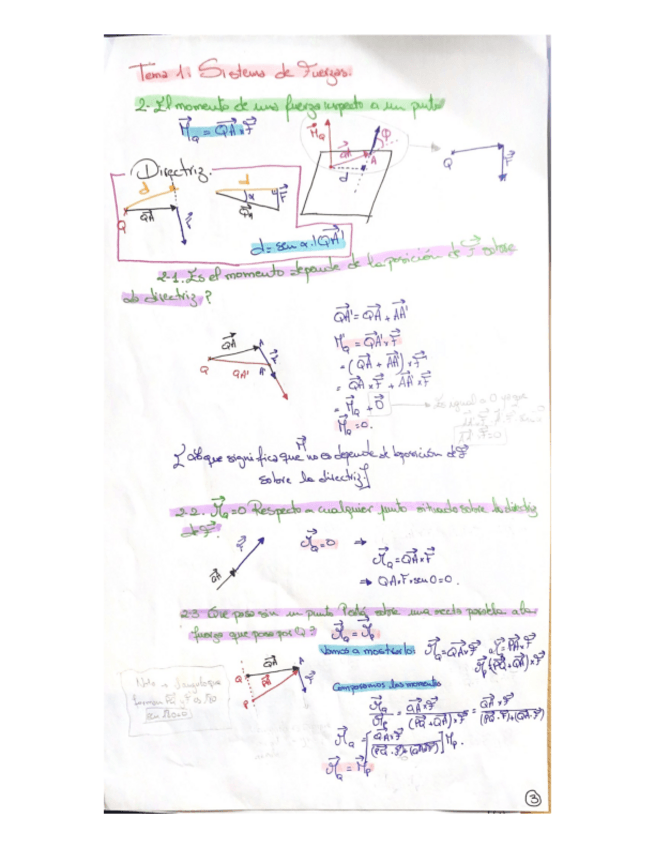 Tema 1: Sistema de Fuerzas.
2- El momento de una fuerza respecto a un punto
M⃗Q = QA⃗ × F⃗
M⃗Q
QA⃗
A
φ
d
Q
F⃗
Directriz.
d
Q
QA⃗
F⃗
d
α
F⃗
QA⃗
d = sen α · |QA⃗|
2-1. ¿Es el momento depende de la posición de F⃗ sobre
la directriz?
QA⃗
A
F⃗
Q
QA'
A'
QA⃗' = QA⃗ + AA⃗'
M⃗'Q = QA⃗' × F⃗
= (QA⃗ + AA⃗') × F⃗
= QA⃗ × F⃗ + AA⃗' × F⃗
= M⃗Q + 0⃗
M⃗Q = 0.
Es igual a 0 ya que
que significa que M⃗ no es depende de la posición de F⃗
sobre la directriz]
2-2. M⃗Q = 0 Respecto a cualquier punto situado sobre la directriz
de F⃗.
F⃗
QA⃗
M⃗Q = 0 ⇒
M⃗Q = QA⃗ × F⃗
⇒ QA · F · sen 0 = 0.
2-3 ¿Que pasa sin un punto P está sobre una recta paralela a la
fuerza que pasa por Q?
M⃗Q = M⃗P
Vamos a mostrarlo:
M⃗Q = QA⃗ × F⃗
QA⃗
A
Q
PA⃗
F⃗
P
Nota → El ángulo que
forman
Comparamos los momentos
M⃗Q / M⃗P = QA⃗ × F⃗ / (PQ + QA) × F⃗ = QA⃗ × F⃗ / (PQ · F) + (QA · F)
M⃗Q = [QA × F / (PQ · F) + (QA · F)] MP.
M⃗Q = M⃗P
3